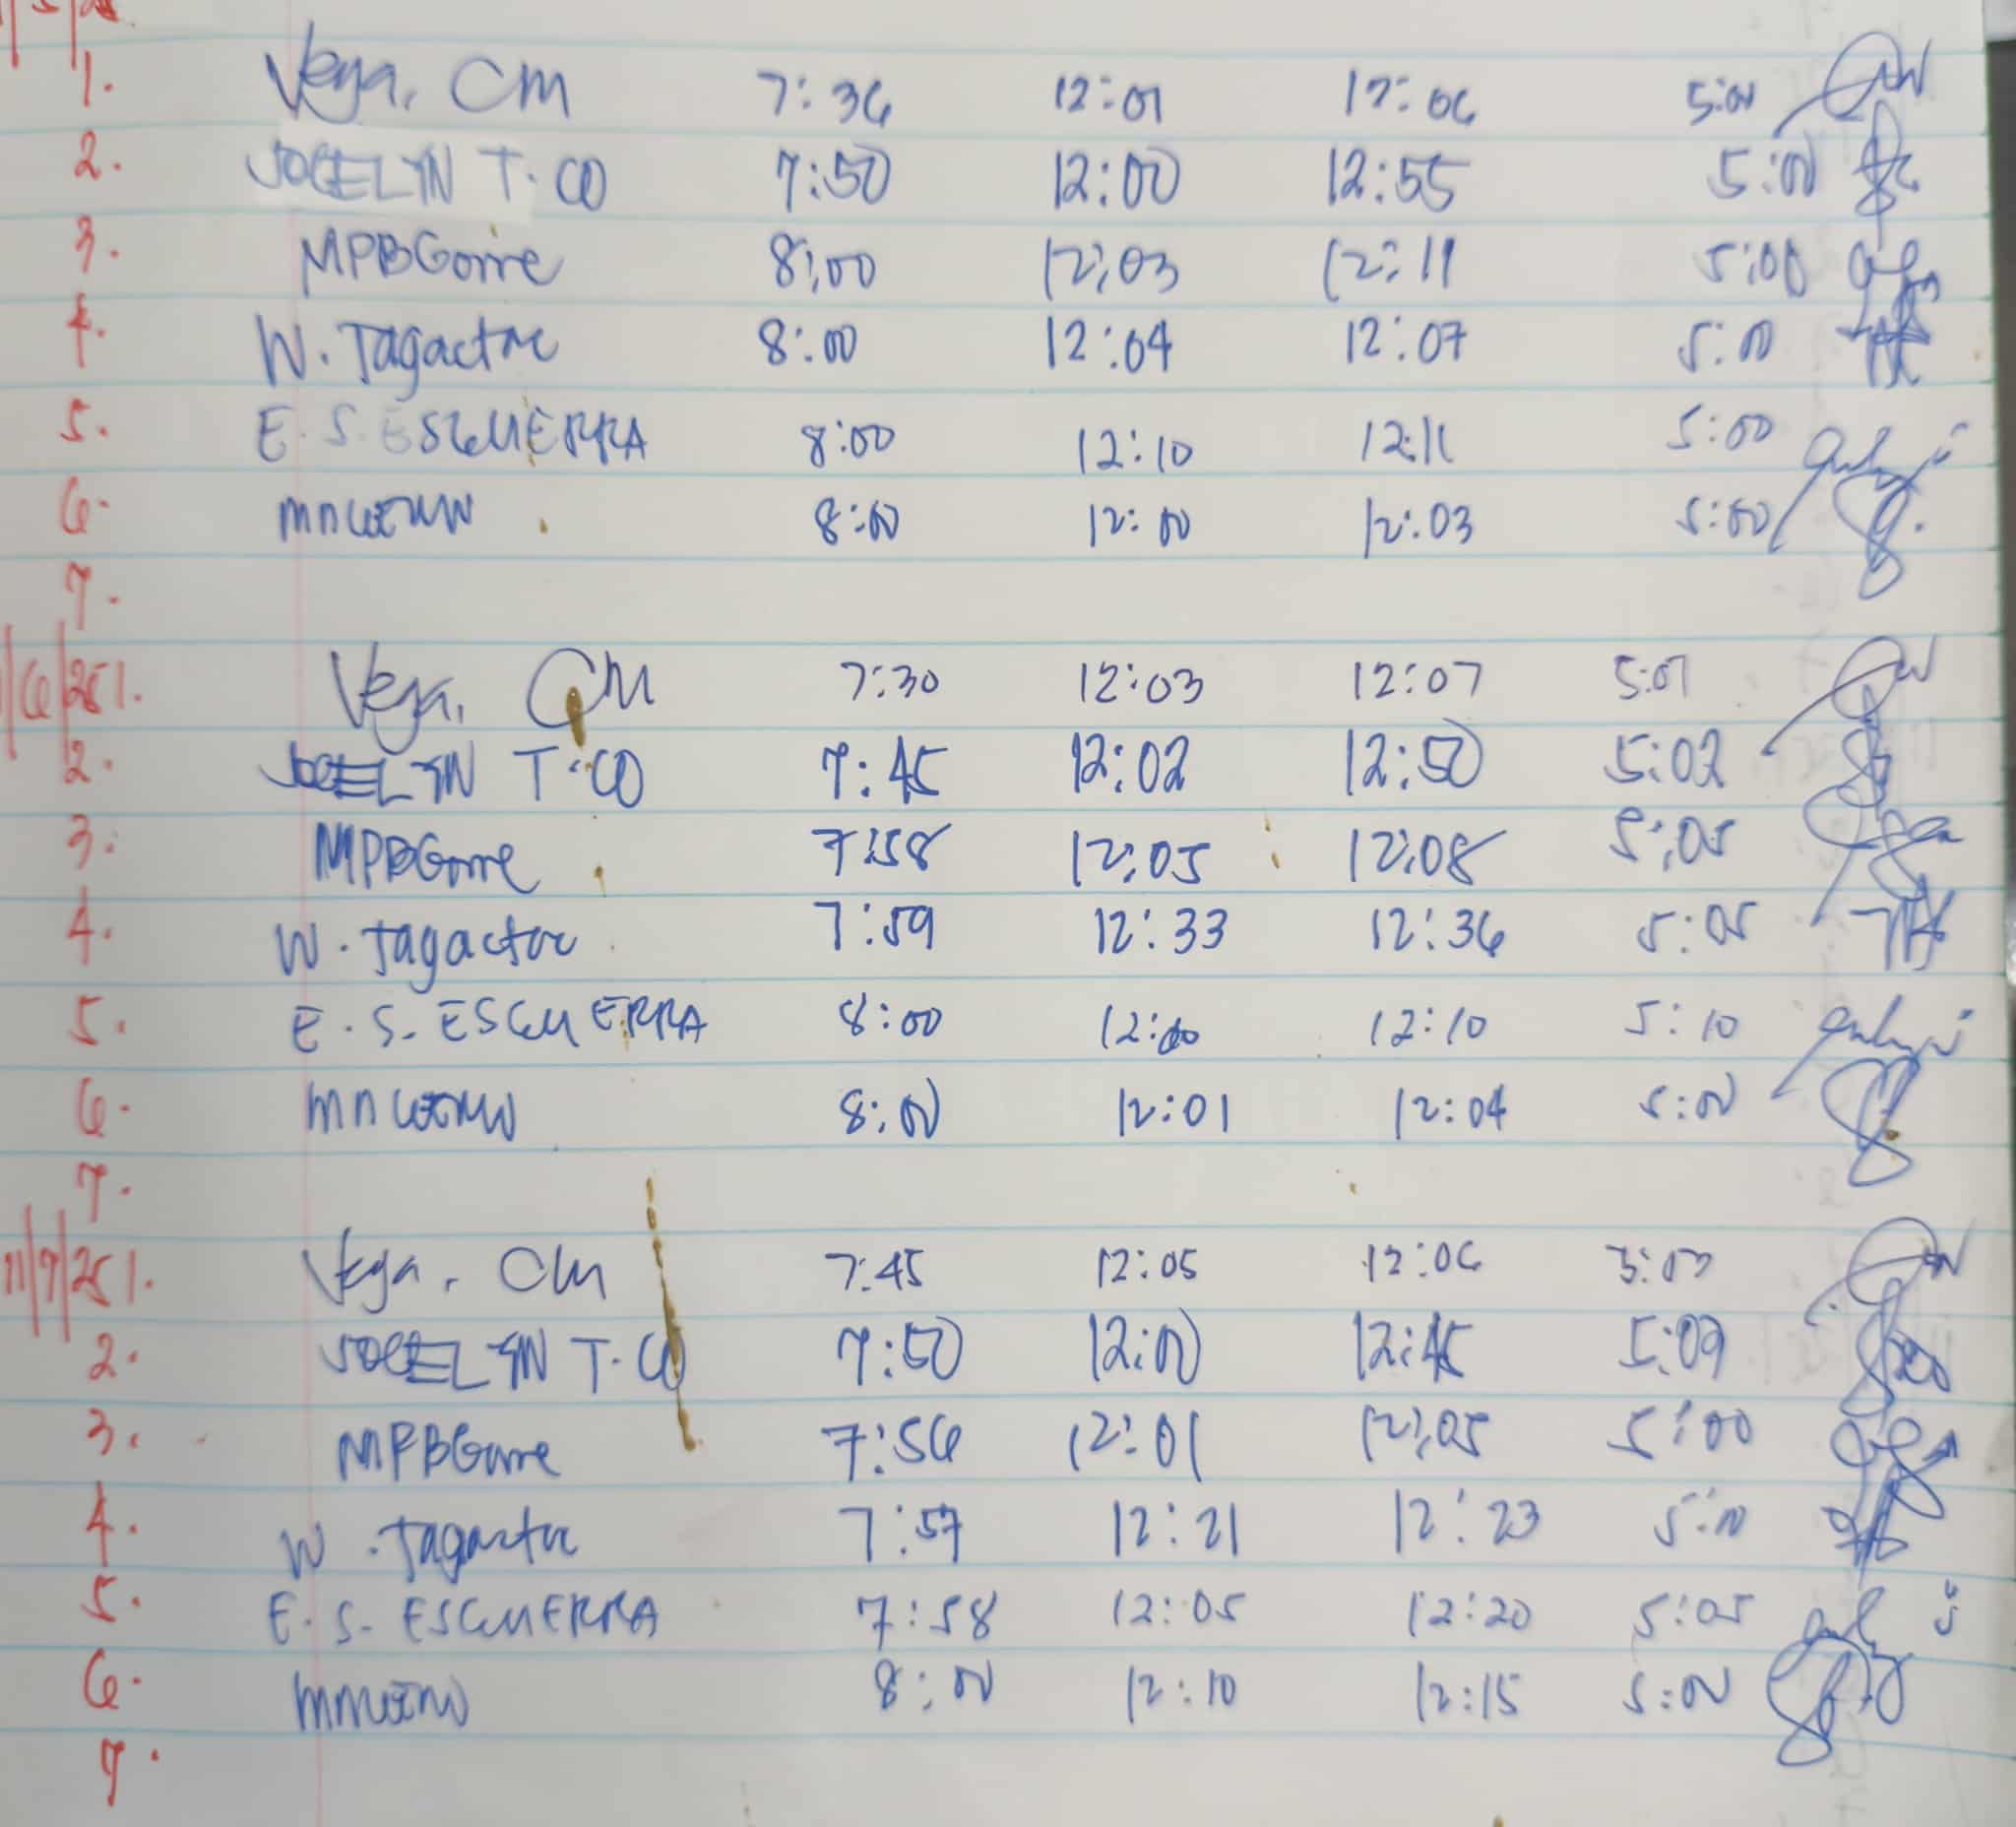 1. Vega, CM 7:36 12:01 12:06 5:01
2. JOCELYN T. CO 7:50 12:00 12:55 5:00
3. MPBGorre 8:00 12:03 12:11 5:00
4. W. Tagactac 8:00 12:04 12:07 5:00
5. E. S. ESGUERRA 8:00 12:10 12:11 5:00
6. 8:00 12:00 12:03 5:00
7.
11/6/25 1. Vega, CM 7:30 12:03 12:07 5:01
2. JOCELYN T. CO 7:45 12:02 12:50 5:02
3. MPBGorre 7:58 12:05 12:08 5:05
4. W. Tagactac 7:59 12:33 12:36 5:05
5. E. S. ESGUERRA 8:00 12:00 12:10 5:10
6. 8:00 12:01 12:04 5:00
7.
11/7/25 1. Vega, CM 7:45 12:05 12:06
2. JOCELYN T. CO 7:50 12:00 12:45 5:09
3. MPBGorre 7:56 12:01 12:05 5:00
4. W. Tagactac 7:57 12:21 12:23 5:10
5. E. S. ESGUERRA 7:58 12:05 12:20 5:05
6. 8:00 12:10 12:15 5:00
7.